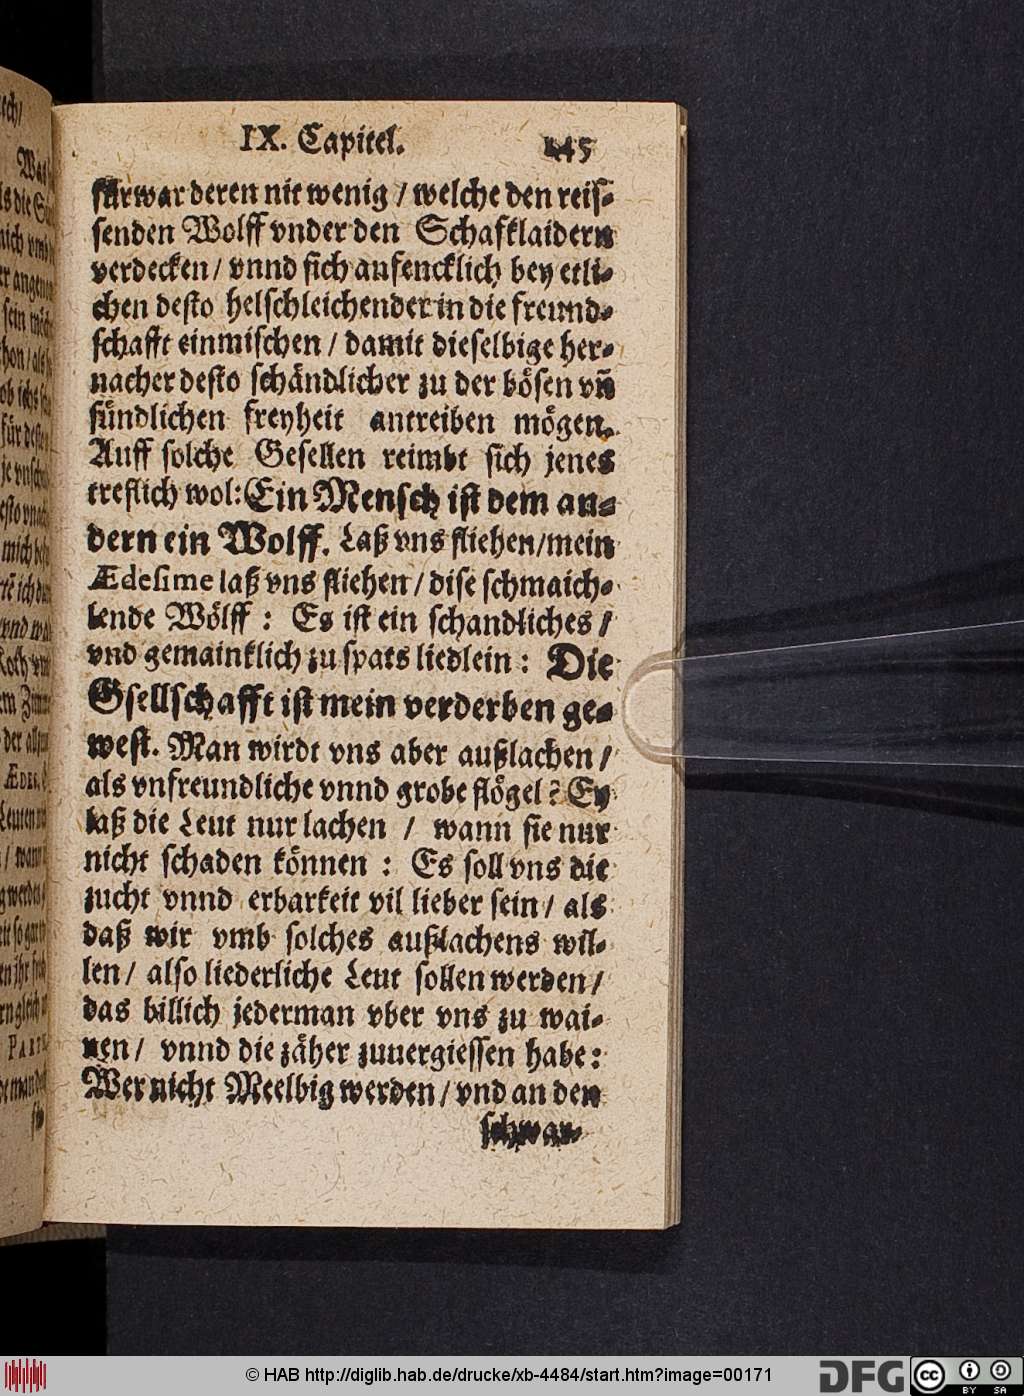 IX. Capitel. 145
fürwar deren nit wenig / welche den reis-
senden Wolff vnder den Schafklaidern
verdecken / vnnd sich anfencklich bey etli-
chen desto helschleichender in die freund-
schafft einmischen / damit dieselbige her-
nacher desto schändlicher zu der bösen vñ
sündlichen freyheit antreiben mögen.
Auff solche Gesellen reimbt sich jenes
treflich wol: Ein Mensch ist dem an-
dern ein Wolff. Laß vns fliehen / mein
Ædesime laß vns fliehen / dise schmaich-
lende Wölff : Es ist ein schandliches /
vnd gemainklich zu spats liedlein : Die
Gsellschafft ist mein verderben ge-
west. Man wirdt vns aber außlachen /
als vnfreundliche vnnd grobe flögel? Ey
laß die Leut nur lachen / wann sie nur
nicht schaden können : Es soll vns die
zucht vnnd erbarkeit vil lieber sein / als
daß wir vmb solches außlachens wil-
len / also liederliche Leut sollen werden /
das billich jederman vber vns zu wai-
nen / vnnd die zäher zuuergiessen habe :
Wer nicht Meelbig werden / vnd an den
schwar-
© HAB http://diglib.hab.de/drucke/xb-4484/start.htm?image=00171
DFG
cc
BY SA